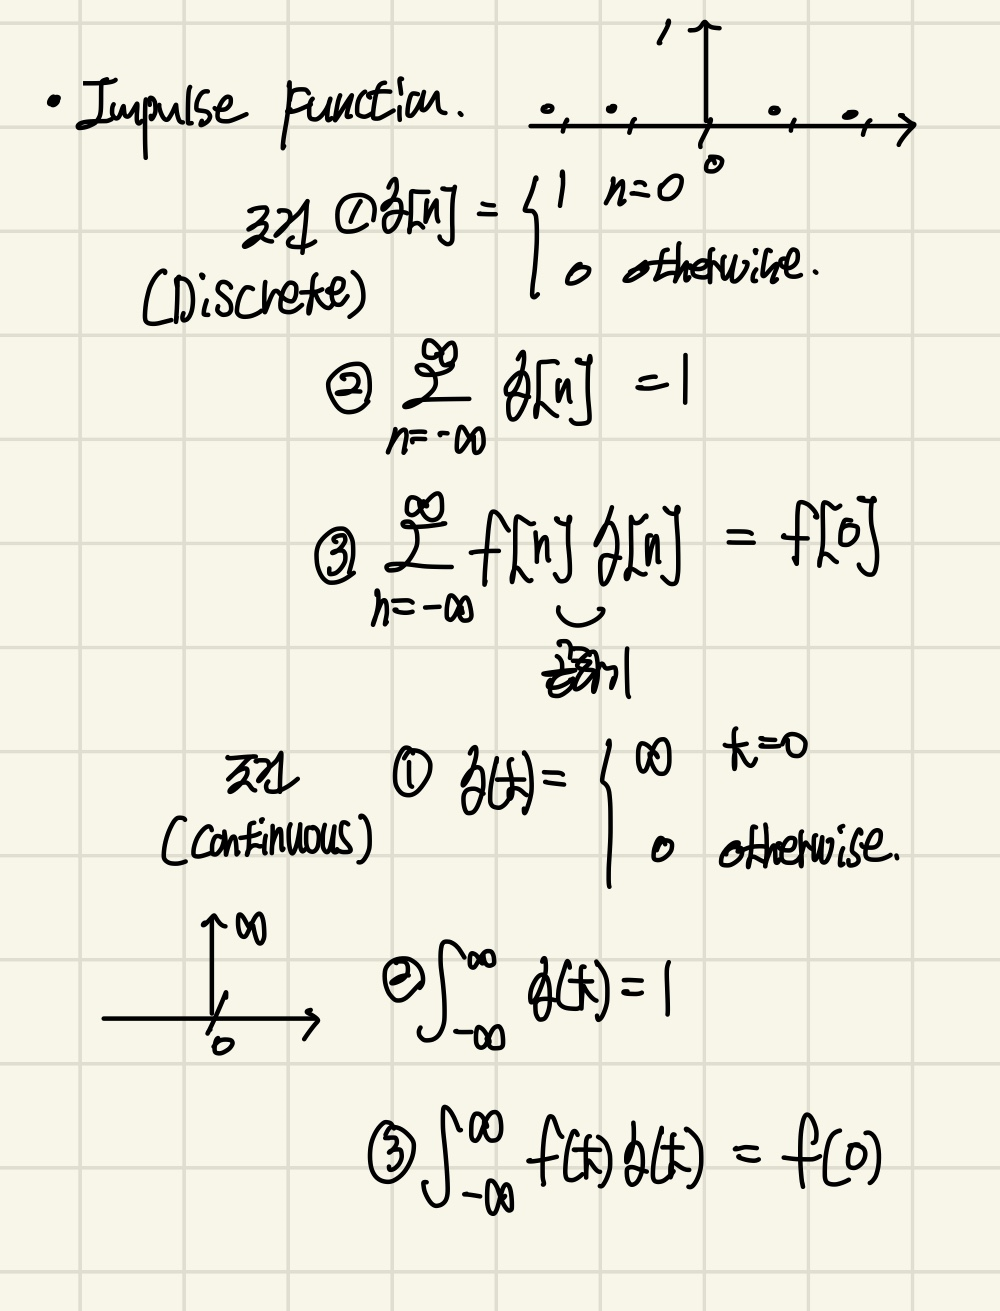 • Impulse function.
1
0
조건 ① δ[n] = { 1 n=0
0 otherwise.
(Discrete)
② ∞ Σ n=-∞ δ[n] = 1
③ ∞ Σ n=-∞ f[n] δ[n] = f[0]
1
조건 ① δ(t) = { ∞ t=0
0 otherwise.
(Continuous)
∞
0
② ∫ ∞ -∞ δ(t) = 1
③ ∫ ∞ -∞ f(t) δ(t) = f(0)